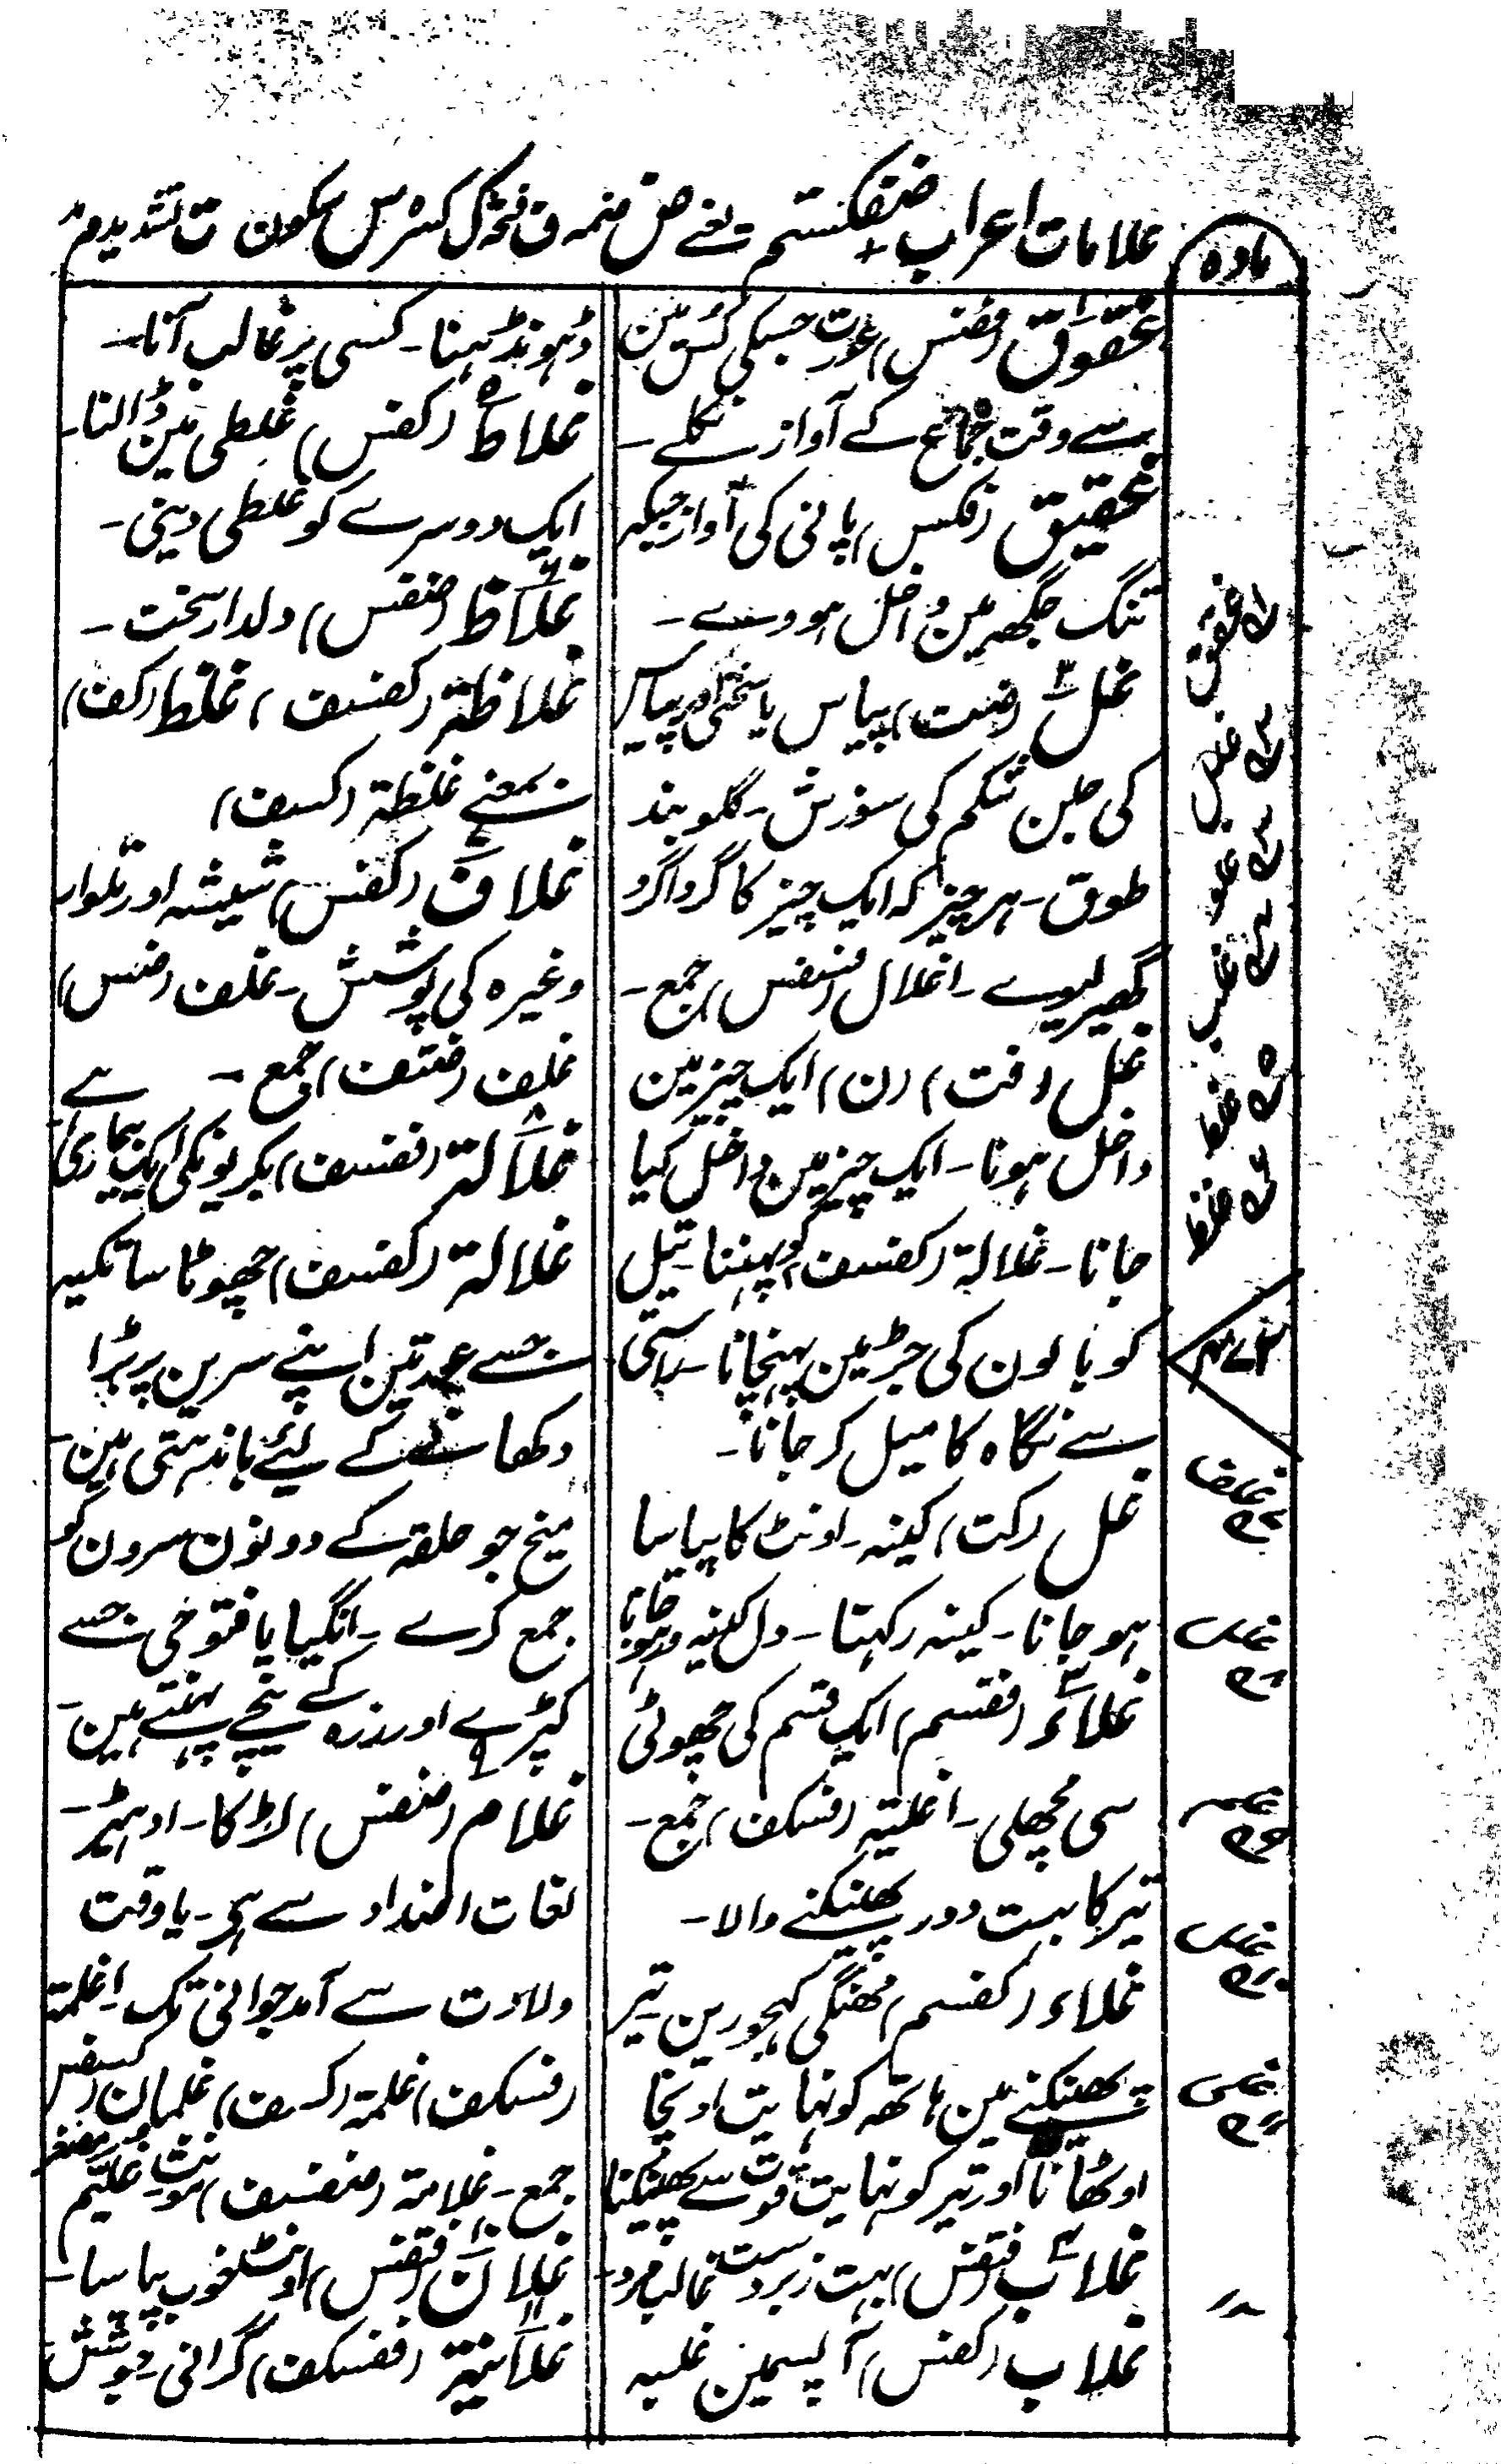 علامات اعراب ضفکستم یعنے ض ضمہ ف فتحہ ک کسرہ س سکون ت تشدید م مد
مادہ
غقوق (فضفس) عورت جسکی کس مین
سے وقت جماع کے آواز نکلے۔
غقیق (فکس) پانی کی آواز جبکہ
تنگ جگھہ مین داخل ہووے۔
غل (ضت) پیاس یا سختی اور پیاس
کی جلن شکم کی سوزش۔ گلو بند
طوق۔ ہر چیز کہ ایک چیز کا گرداگرد
گھیر لیوے۔ اغلال (فسفس) جمع۔
غل (فت) (ن) ایک چیز مین
داخل ہونا۔ ایک چیز مین داخل کیا
جانا۔ غلالة (کفسف) کو پہننا۔ تیل
کو بالون کی جڑ مین پہنچانا۔ راستی
سے نگاہ کا میل کر جانا۔
غل (کت) کینہ۔ اونٹ کا پیاسا
ہو جانا۔ کینہ رکہنا۔ دل کینہ ور ہو جانا
غلاء (فتسم) ایک قسم کی چھوٹی
سی مچھلی۔ اغلیة (فسکف) جمع۔
تیر کا بہت دور پھینکنے والا۔
غلاء (کفسم) مھنگی کہجورین تیر
پھینکنے مین ہاتھہ کو نہایت اونچا
اوٹھانا اور تیر کو نہایت قوت سے پھینکنا
غلاب (فتفس) بہت زبردست غالب مرد۔
غلاب (کفس) آپسمین غلبہ
ڈہونڈہنا۔ کسی پر غالب آنا۔
غلاط (کفس) غلطی مین ڈالنا۔
ایک دوسرے کو غلطی دینی۔
غلاظ (ضفس) دلدار سخت۔
غلاظة (کفسف) غلظ (کف)
بمعنے غلظة (کسف)
غلاف (کفس) شیشہ اور تلوار
وغیرہ کی پوشش۔ غلف (ضس)
غلف (ضتف) جمع۔
غلالة (ففسف) بکریونکی ایک بیماری ہے
غلالة (کفسف) چھوٹا سا تکیہ
جسے عورتین اپنے سرین پر بڑا
دکھانے کے لیئے باندہتی ہین۔
میخ جو حلقہ کے دونون سرون کو
جمع کرے۔ انگیا یا فتوحی جسے
کپڑے اور زرہ کے نیچے پہنتے ہین۔
غلام (ضفس) لڑکا۔ ادہیڑ۔
لغات اضداد سے ہی۔ یا وقت
ولادت سے آمد جوانی تک۔ اغلمة
(فسکف) غلمة (کسف) غلمان (کسفس)
جمع۔ غلامة (ضفسف) مونث۔ غلیم مصغر
غلان (فتفس) اونٹ خوب پیاسا۔
غلانیة (ففسکف) گرانی جوشش
غقق
غلل
غلو
غلب
غلط
غلظ
غلف
غلل
غلم
غلل
غلی